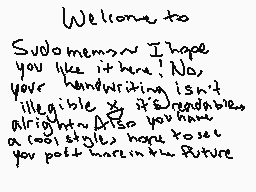 Welcome to
Sudomemo~ I hope
you like it here! No,
your handwriting isn't
illegible it's readable
alright~ Also you have
a cool style, hope to see
you post more in the future